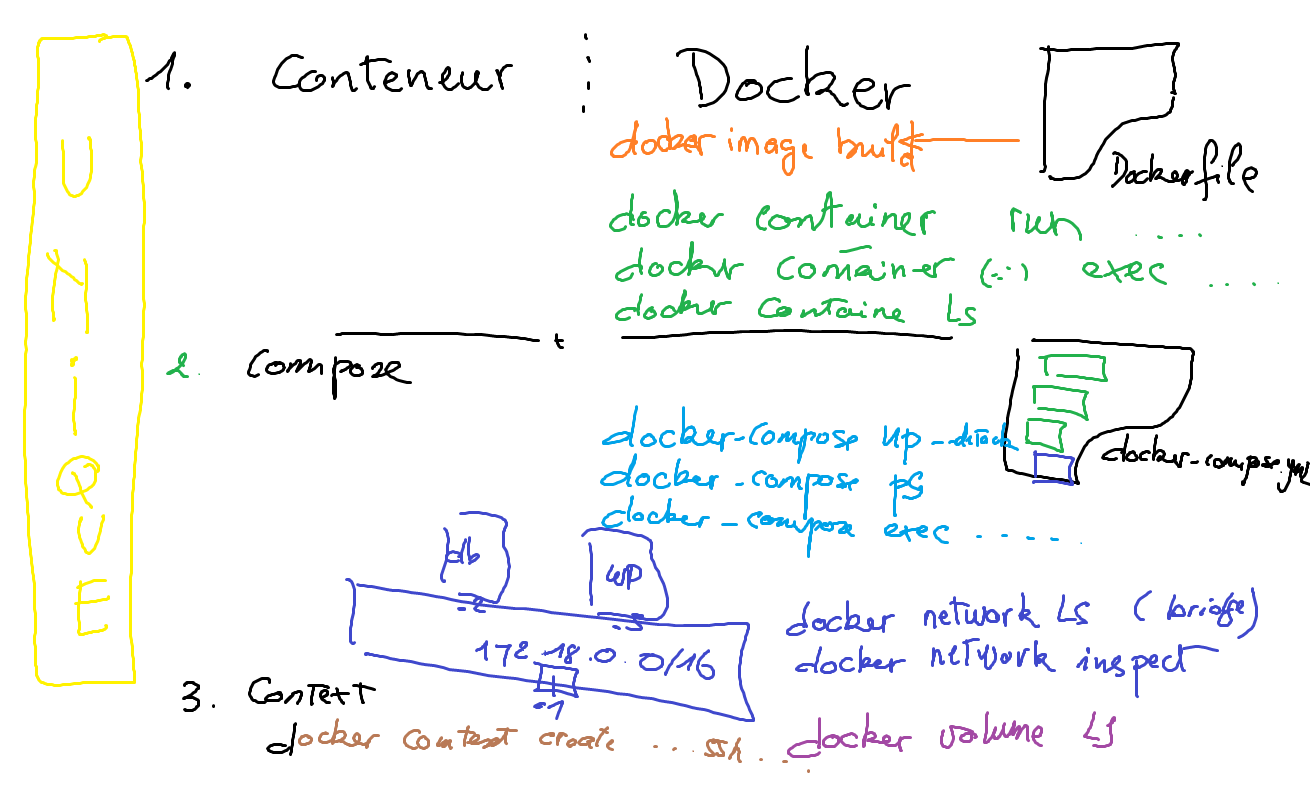 UNiQUE
1. Conteneur Docker
docker image build
Dockerfile
docker container run ....
docker container (...) exec ....
docker containe Ls
2. Compose
docker-compose up -detach
docker-compose.yml
docker-compose ps
docker-compose exec .....
db
wp
.2
.3
172.18.0.0/16
.1
docker network Ls (bridge)
docker network inspect
3. Context
docker context create ... ssh ...
docker volume LS